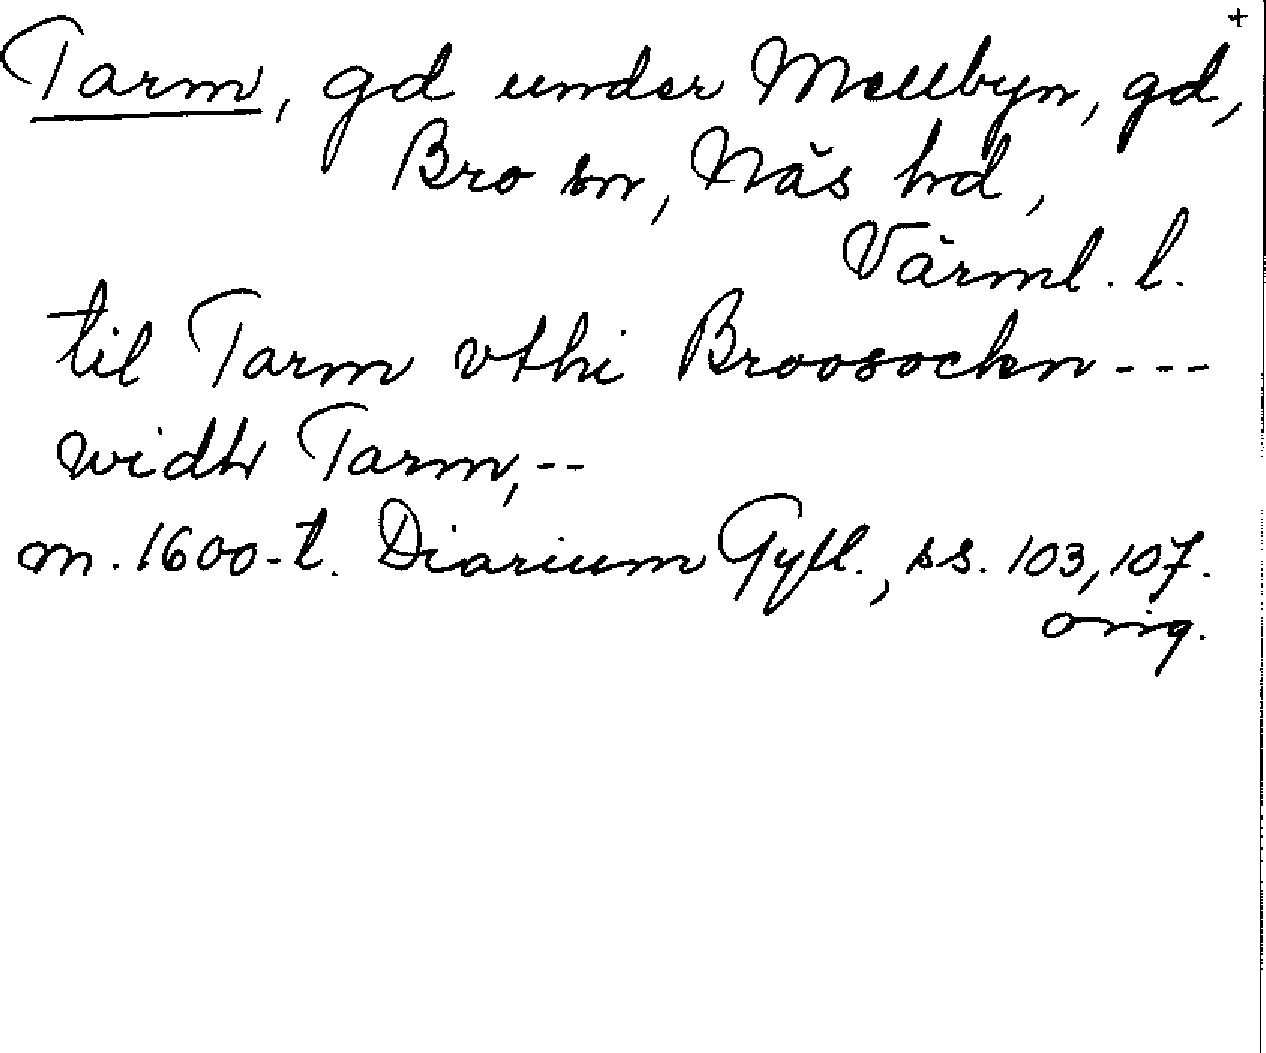 +
Tarm, gd under Mellbyn, gd,
Bro sn, Näs hd,
Värml. l.
til Tarm vthi Broosockn ---
widh Tarm, --
m. 1600-t. Diarium Gyll., ss. 103, 107.
orig.